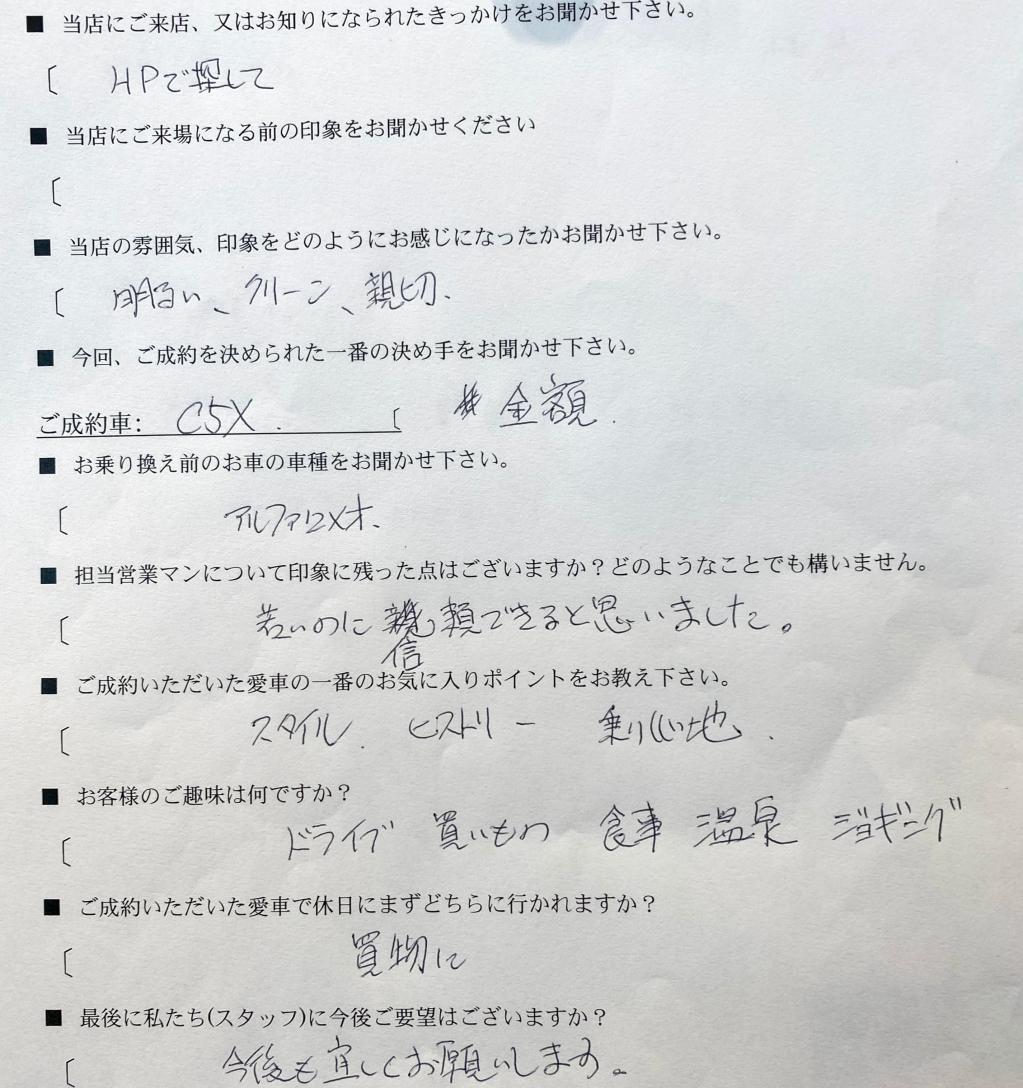 ■ 当店にご来店、又はお知りになられたきっかけをお聞かせ下さい。
〔 HPで探して
■ 当店にご来場になる前の印象をお聞かせください
〔
■ 当店の雰囲気、印象をどのようにお感じになったかお聞かせ下さい。
〔 明るい、クリーン、親切.
■ 今回、ご成約を決められた一番の決め手をお聞かせ下さい。
ご成約車: C5X. 〔 金額.
■ お乗り換え前のお車の車種をお聞かせ下さい。
〔 アルファロメオ.
■ 担当営業マンについて印象に残った点はございますか？どのようなことでも構いません。
〔 若いのに信頼できると思いました。
■ ご成約いただいた愛車の一番のお気に入りポイントをお教え下さい。
〔 スタイル. ヒストリー 乗り心地.
■ お客様のご趣味は何ですか？
〔 ドライブ 買いもの 食事 温泉 ジョギング
■ ご成約いただいた愛車で休日にまずどちらに行かれますか？
〔 買物に
■ 最後に私たち(スタッフ)に今後ご要望はございますか？
〔 今後も宜しくお願いします。